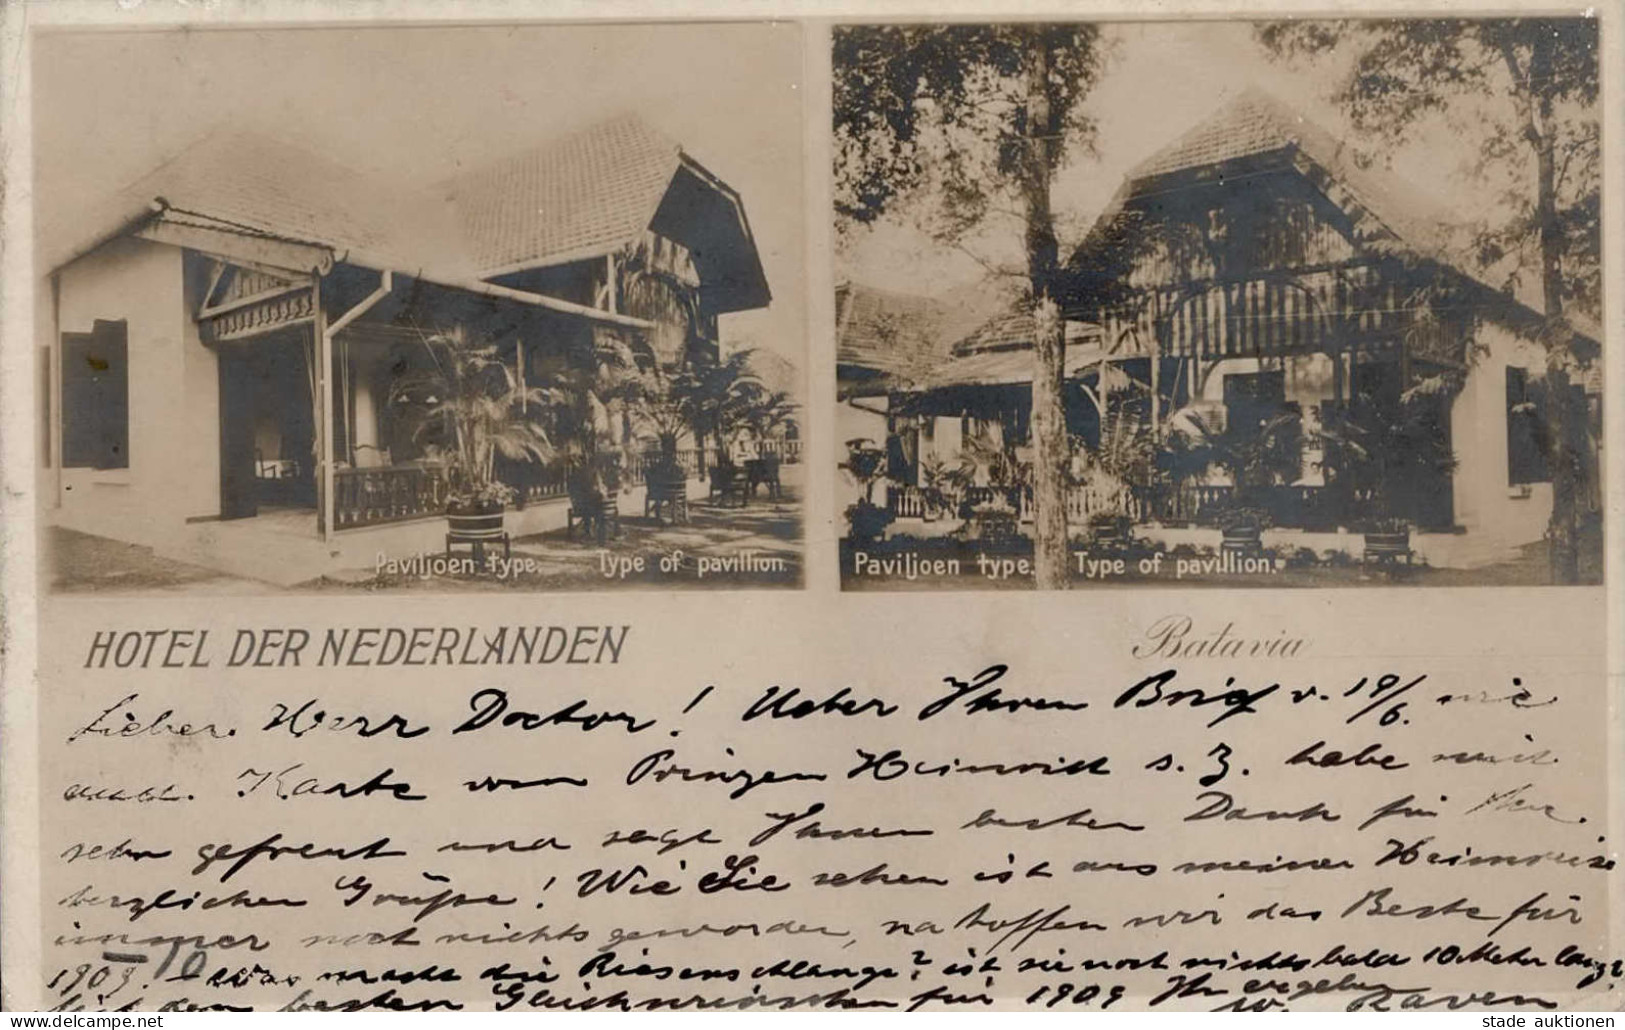 Paviljoen type. Type of pavillion.
Paviljoen type. Type of pavillion.
HOTEL DER NEDERLANDEN
Batavia
Lieber Herr Doctor! Ueber Ihren Brief v. 19/6. wie
auch Karte von Prinzen Heinrich s. Z. habe mich
sehr gefreut und sage Ihnen besten Dank für Ihre
herzlichen Grüße! Wie Sie sehen ist aus meiner Heimreise
immer noch nichts geworden, na hoffen wir das Beste für
1909. Was macht die Riesenschlange? ist sie noch nichts bald 10 Meter lang?
Mit den besten Glückwünschen für 1909 Ihr ergebener
W. Raven
stade auktionen